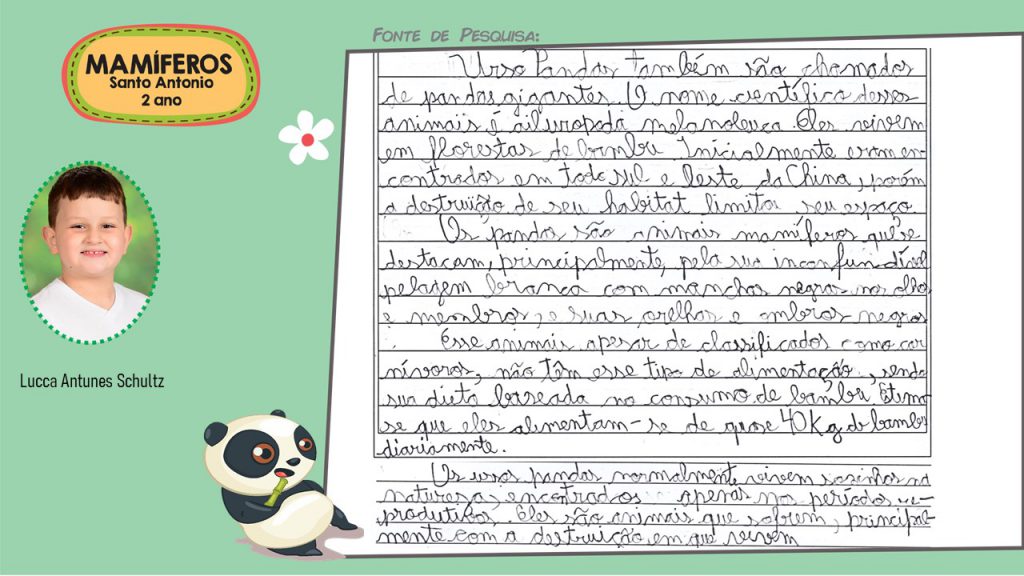 MAMÍFEROS
Santo Antonio
2 ano
Lucca Antunes Schultz
FONTE DE PESQUISA:
Urso Pandas também são chamados
de pandas gigantes. O nome científico desses
animais é ailuropoda melanoleuca. Eles vivem
em florestas de bambu. Inicialmente eram en-
contrados em todo sul e leste da China, porém
a destruição de seu habitat limitou seu espaço.
Os pandas são animais mamíferos que se
destacam, principalmente, pela sua inconfundível
pelagem branca com manchas negras nos olhos
e membros, e suas orelhas e ombros negros
Esse animais apesar de classificados como car
nívoros, não têm esse tipo de alimentação, sendo
sua dieta baseada no consumo de bambu. Estima
se que eles alimentam-se de quase 40kg de bambu
diariamente.
Os ursos pandas normalmente vivem sozinhos na
natureza, encontrados apenas nos períodos re-
produtivos. Eles são animais que sofrem, principal-
mente com a destruição em que vivem